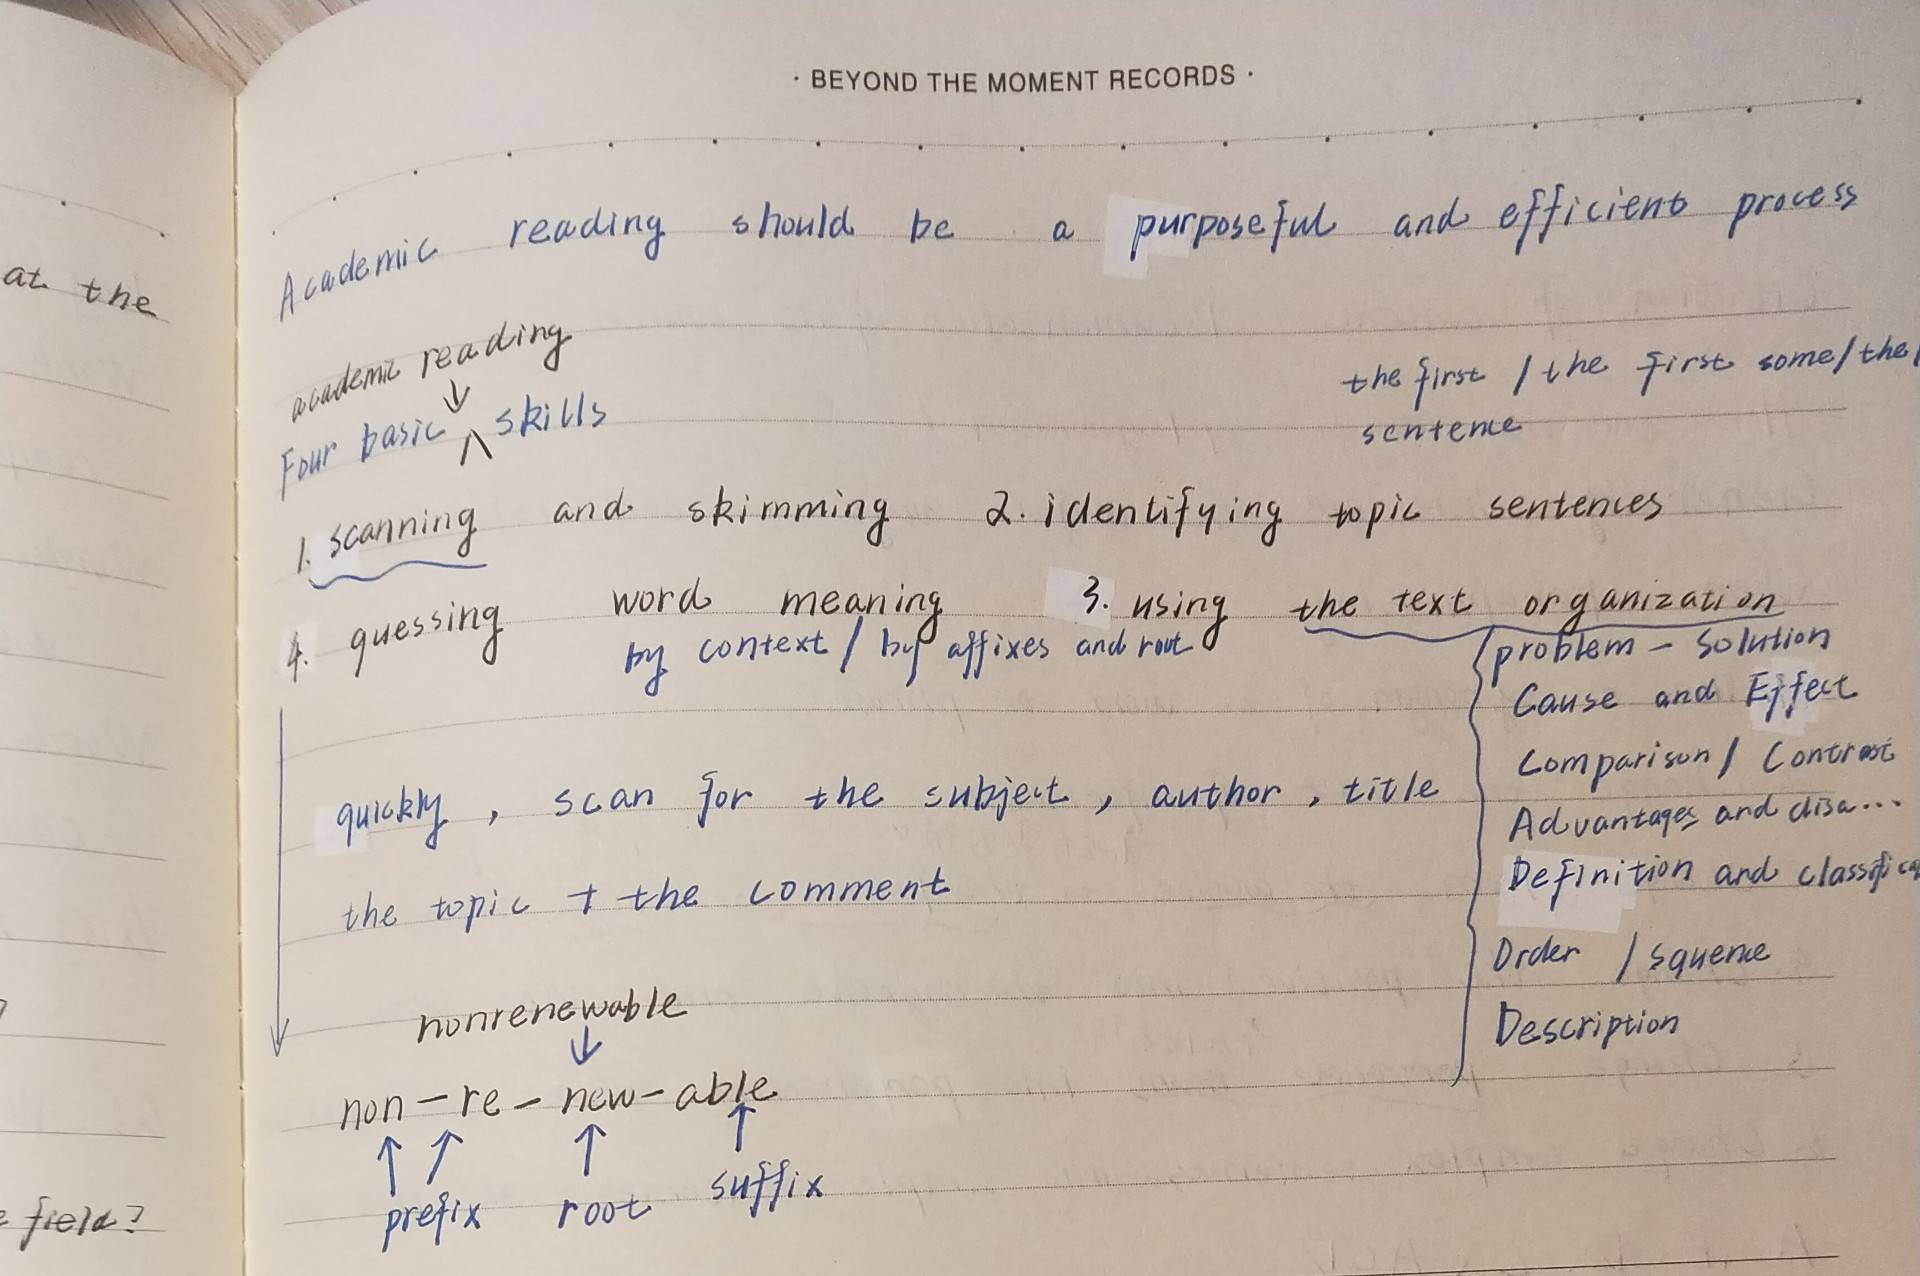 · BEYOND THE MOMENT RECORDS ·
at the
field?
Academic reading should be a purposeful and efficient process
academic reading
Four basic skills
the first / the first some/the
sentence
1. scanning and skimming 2. identifying topic sentences
4. guessing word meaning 3. using the text organization
by context / by affixes and root
problem - solution
Cause and Effect
Comparison / Contrast
Advantages and disa...
Definition and classifica
Order / squence
Description
quickly, scan for the subject, author, title
the topic + the comment
nonrenewable
non - re - new - able
prefix root suffix